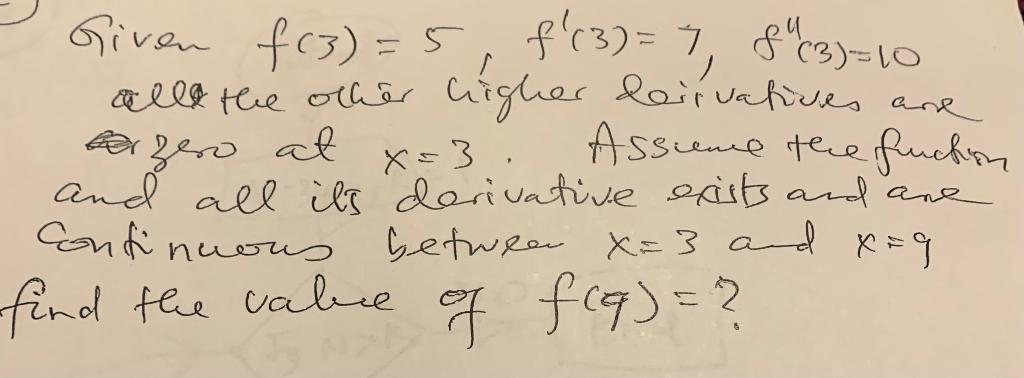 Given f(3) = 5, f'(3) = 7, f''(3)=10
all the other higher derivatives are
zero at x = 3. Assume the function
and all its derivative exists and are
Continuous between x = 3 and x = 9
find the value of f(9) = ?